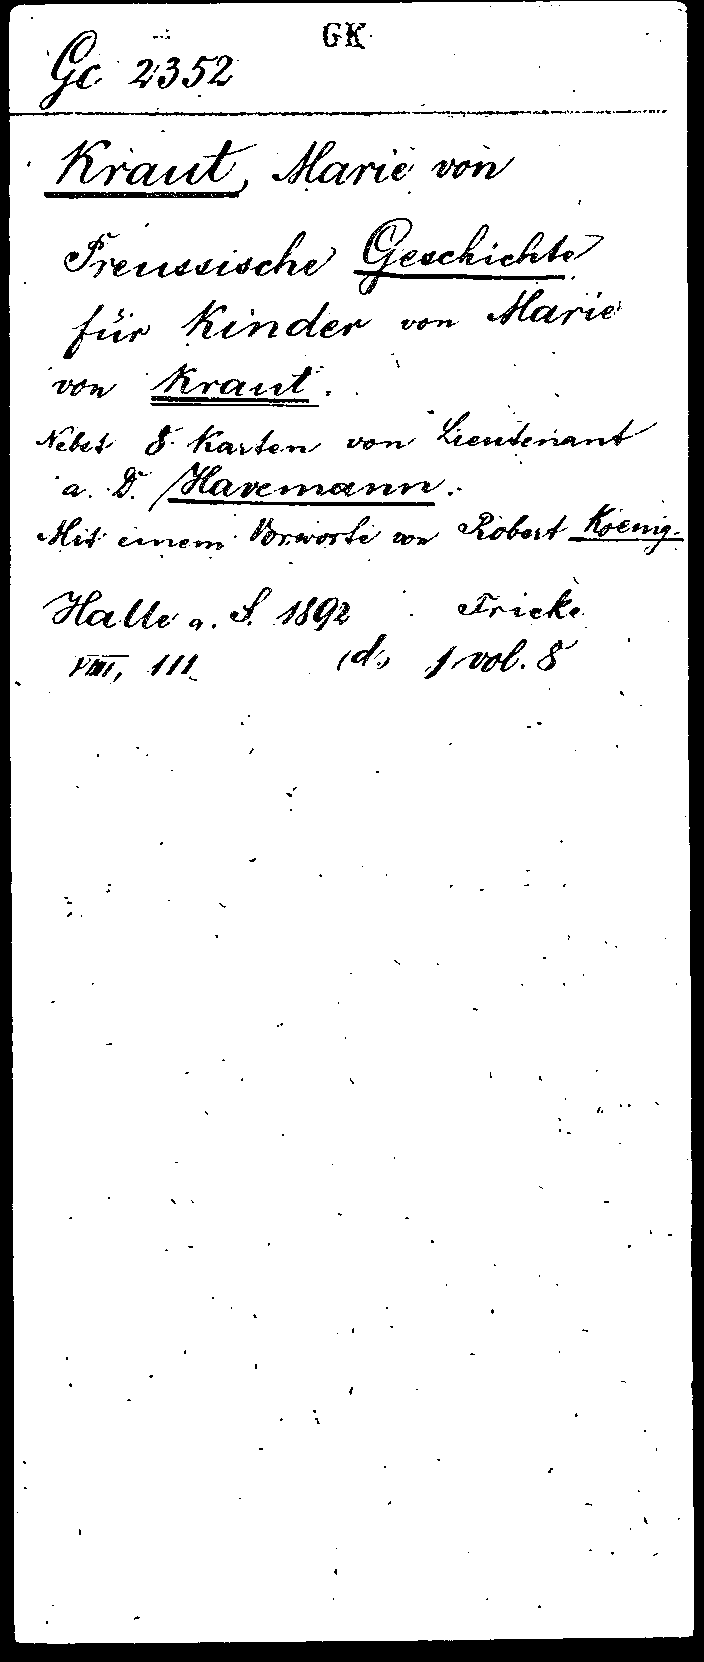 GK
Gc 2352
Kraut, Marie von
Preussische Geschichte
für Kinder von Marie
von Kraut.
Nebst 8 Karten von Lieutenant
a. D. Havemann.
Mit einem Vorworte von Robert Koenig.
Halle a. S. 1892 Fricke
VIII, 111 (d.) 1 vol. 8